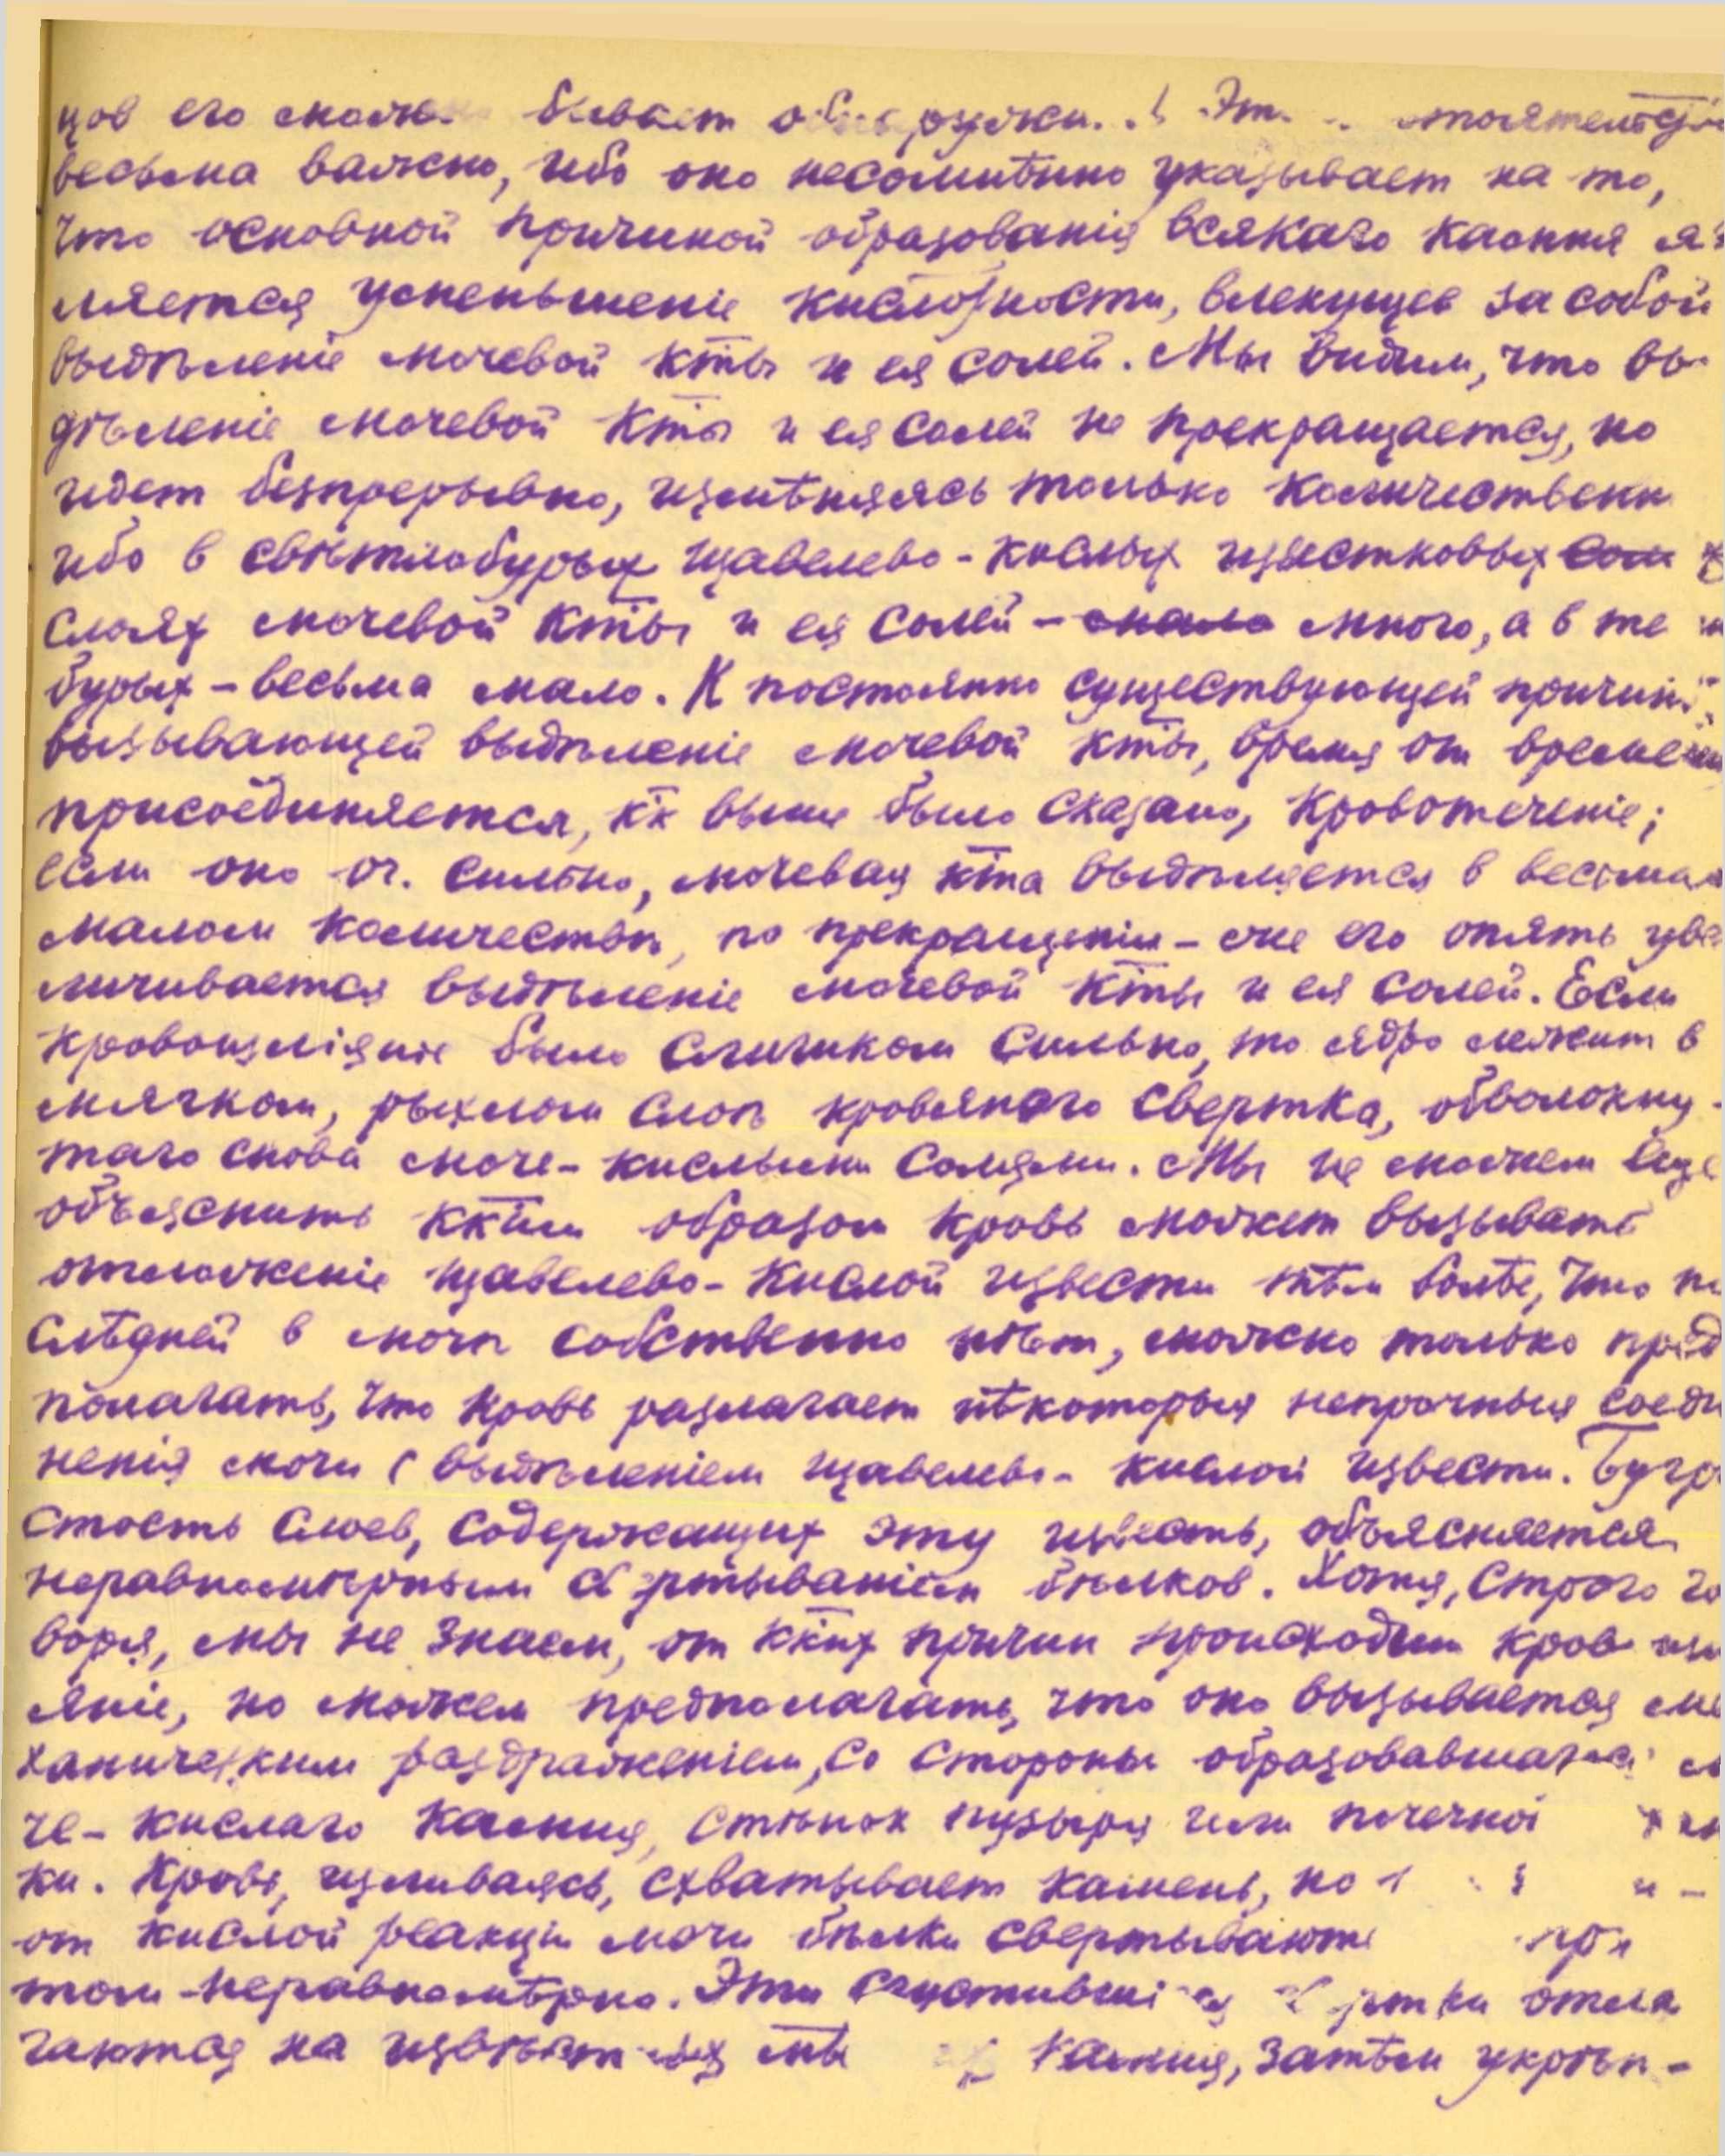 цов его можно бывает обнаружи
весьма важно, ибо оно несомнѣнно указывает на то,
что основной причиной образованія всякаго камня яв
ляется уменьшеніе кислотности, влекущее за собой
выдѣленіе мочевой кты и ея солей. Мы видим, что вы-
дѣленіе мочевой кты и ея солей не прекращается, но
идет безпрерывно, измѣняясь только количественн
ибо в свѣтлобурых щавелево-кислых известковых
слоях мочевой кты и ея солей - мало много, а в те
бурых - весьма мало. К постоянно существующей причинѣ,
вызывающей выдѣленіе мочевой кты, время от времени
присоединяется, кк выше было сказано, кровотеченіе;
если оно оч. сильно, мочевая кта выдѣляется в весьма
малом количествѣ, по прекращеніи-же его опять уве
личивается выдѣленіе мочевой кты и ея солей. Если
кровоизліяніе было слишком сильно, то ядро лежит в
мягком, рыхлом слоѣ кровяного свертка, обволокну-
таго снова моче-кислыми солями. Мы не можем еще
объяснить ккім образом кровь может вызывать
отложеніе щавелево-кислой извести тѣм болѣе, что по
слѣдней в мочѣ собственно нѣт, можно только пред
полагать, что кровь разлагает нѣкоторыя непрочныя соеди
ненія мочи с выдѣленіем щавелево-кислой извести. Бугри
стость слоев, содержащих эту известь, объясняется
неравномѣрным свертываніем бѣлков. Хотя, строго го
воря, мы не знаем, от ккх причин происходит кровоизл
яніе, но можем предполагать, что оно вызывается ме
ханическим раздраженіем, со стороны образовавшагося м
че-кислаго камня, стѣнок пузыря или почечной
ки. Кровь, изливаясь, схватывает камень, но
от кислой реакціи мочи бѣлки свертывают при
том-неравномѣрно. Эти сгустившіяся свертки отла
гаются на извѣстных мѣ камня, затѣм укрѣп-